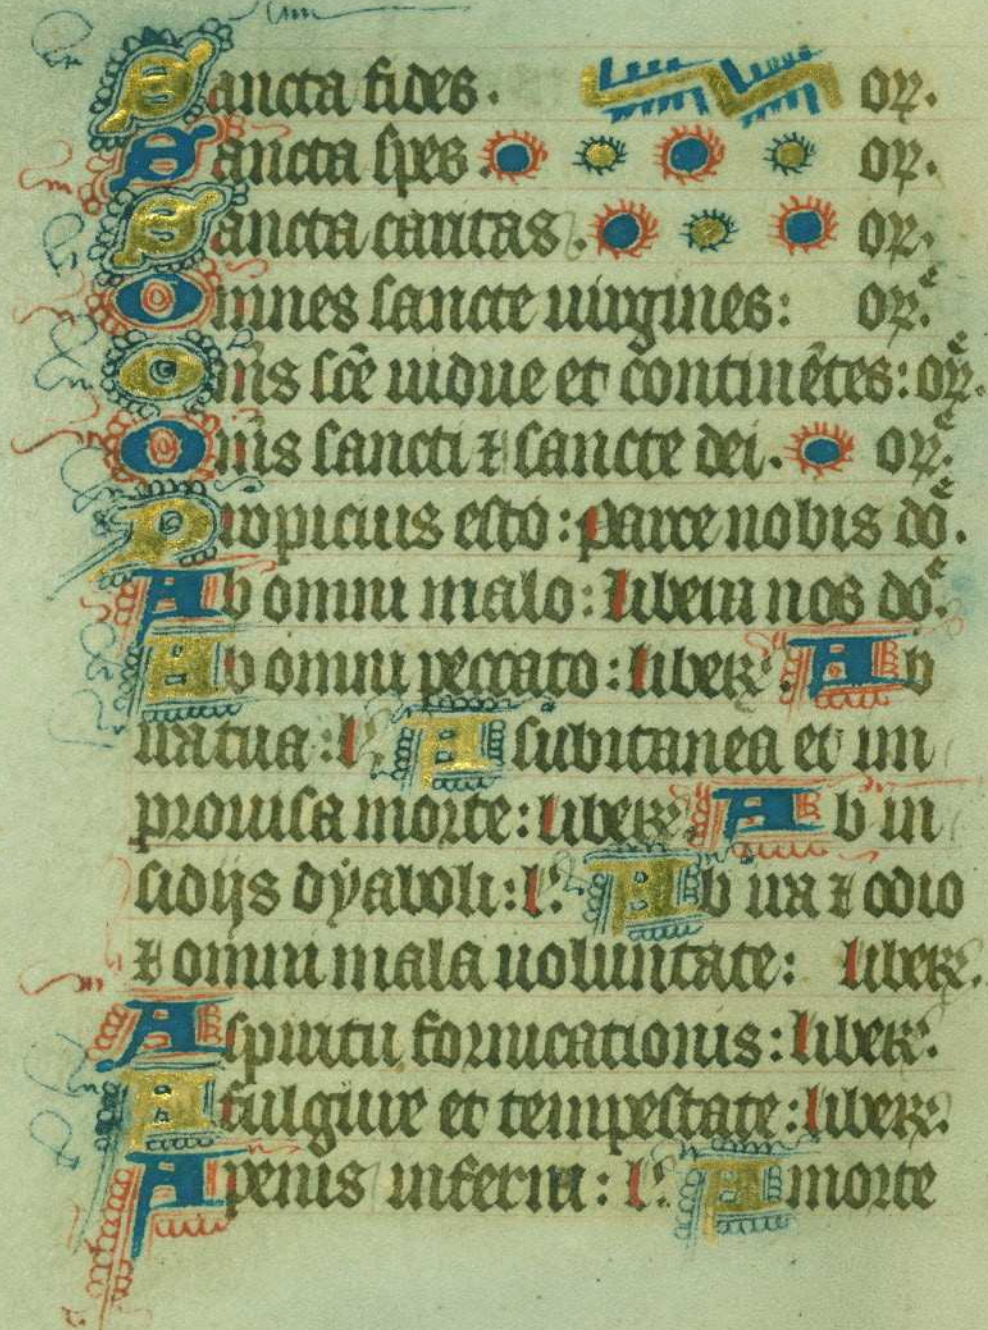 Sancta fides. or.
Sancta spes. or.
Sancta caritas. or.
Omnes sancte uirgines: or.
Omīs scē uidue et continētes: or.
Omīs sancti ⁊ sancte dei. or.
Propicius esto: parce nobis dō.
Ab omni malo: libera nos dō.
Ab omni peccato: liber. Ab
ira tua: l. A subitanea et im
prouisa morte: liber. Ab in
sidijs dẏaboli: l. Ab ira ⁊ odio
⁊ omni mala uoluntate: liber.
A spiritu fornicationis: liber.
A fulgure et tempestate: liber.
A penis inferni: l. A morte